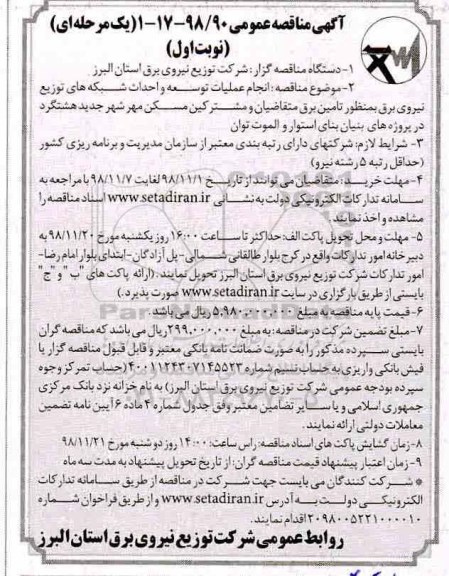 آگهی مناقصه عمومی ۹۸/۹۰-۱۷-۱(یک مرحله ای)
(نوبت اول)
۱-دستگاه مناقصه گزار: شرکت توزیع نیروی برق استان البرز
۲-موضوع مناقصه: انجام عملیات توسعه و احداث شبکه های توزیع
نیروی برق بمنظور تامین برق متقاضیان و مشترکین مسکن مهر شهر جدید هشتگرد
در پروژه های بنیان بنای استوار و الموت توان
۳- شرایط لازم: شرکتهای دارای رتبه بندی معتبر از سازمان مدیریت و برنامه ریزی کشور
(حداقل رتبه ۵ رشته نیرو)
۴-مهلت خرید: متقاضیان می توانند از تاریخ ۹۸/۱۱/۱ لغایت ۹۸/۱۱/۷ با مراجعه به
سامانه تدارکات الکترونیکی دولت به نشانی www.setadiran.ir اسناد مناقصه را
مشاهده و اخذ نمایند
۵- مهلت و محل تحویل پاکت الف: حداکثر تا ساعت ۱۶:۰۰ روز یکشنبه مورخ ۹۸/۱۱/۲۰ به
دبیرخانه امور تدارکات واقع در کرج بلوار طالقانی شمالی-پل آزادگان-ابتدای بلوار امام رضا-
امور تدارکات شرکت توزیع نیروی برق استان البرز تحویل نمایند. (ارائه پاکت های "ب" و "ج"
بایستی از طریق بارگزاری در سایت www.setadiran.ir صورت پذیرد.)
۶-قیمت پایه مناقصه به مبلغ ریال می باشد
۷-مبلغ تضمین شرکت در مناقصه: به مبلغ ۲۹۹,۰۰۰,۰۰۰ ریال می باشد که مناقصه گران
بایستی سپرده مذکور را به صورت ضمانت نامه بانکی معتبر و قابل قبول مناقصه گزار یا
فیش بانکی واریزی به حساب شماره ۴۰۰۱۱۲۴۳۰۷۱۴۵۵۲۳ (حساب تمرکز وجوه
سپرده بودجه عمومی شرکت توزیع نیروی برق استان البرز) به نام خزانه نزد بانک مرکزی
جمهوری اسلامی و یا سایر تضامین معتبر وفق جدول شماره ۴ ماده ۶ آیین نامه تضمین
معاملات دولتی ارائه نمایند.
۸-زمان گشایش پاکت های اسناد مناقصه: راس ساعت: ۱۴:۰۰ روز دوشنبه مورخ ۹۸/۱۱/۲۱
۹-زمان اعتبار پیشنهاد قیمت مناقصه گران: از تاریخ تحویل پیشنهاد به مدت سه ماه
* شرکت کنندگان می بایست جهت شرکت در مناقصه از طریق سامانه تدارکات
الکترونیکی دولت به آدرس www.setadiran.ir و از طریق فراخوان شماره
۲۰۹۸۰۰۵۲۲۱۰۰۰۰۱۰ اقدام نمایند.
روابط عمومی شرکت توزیع نیروی برق استان البرز